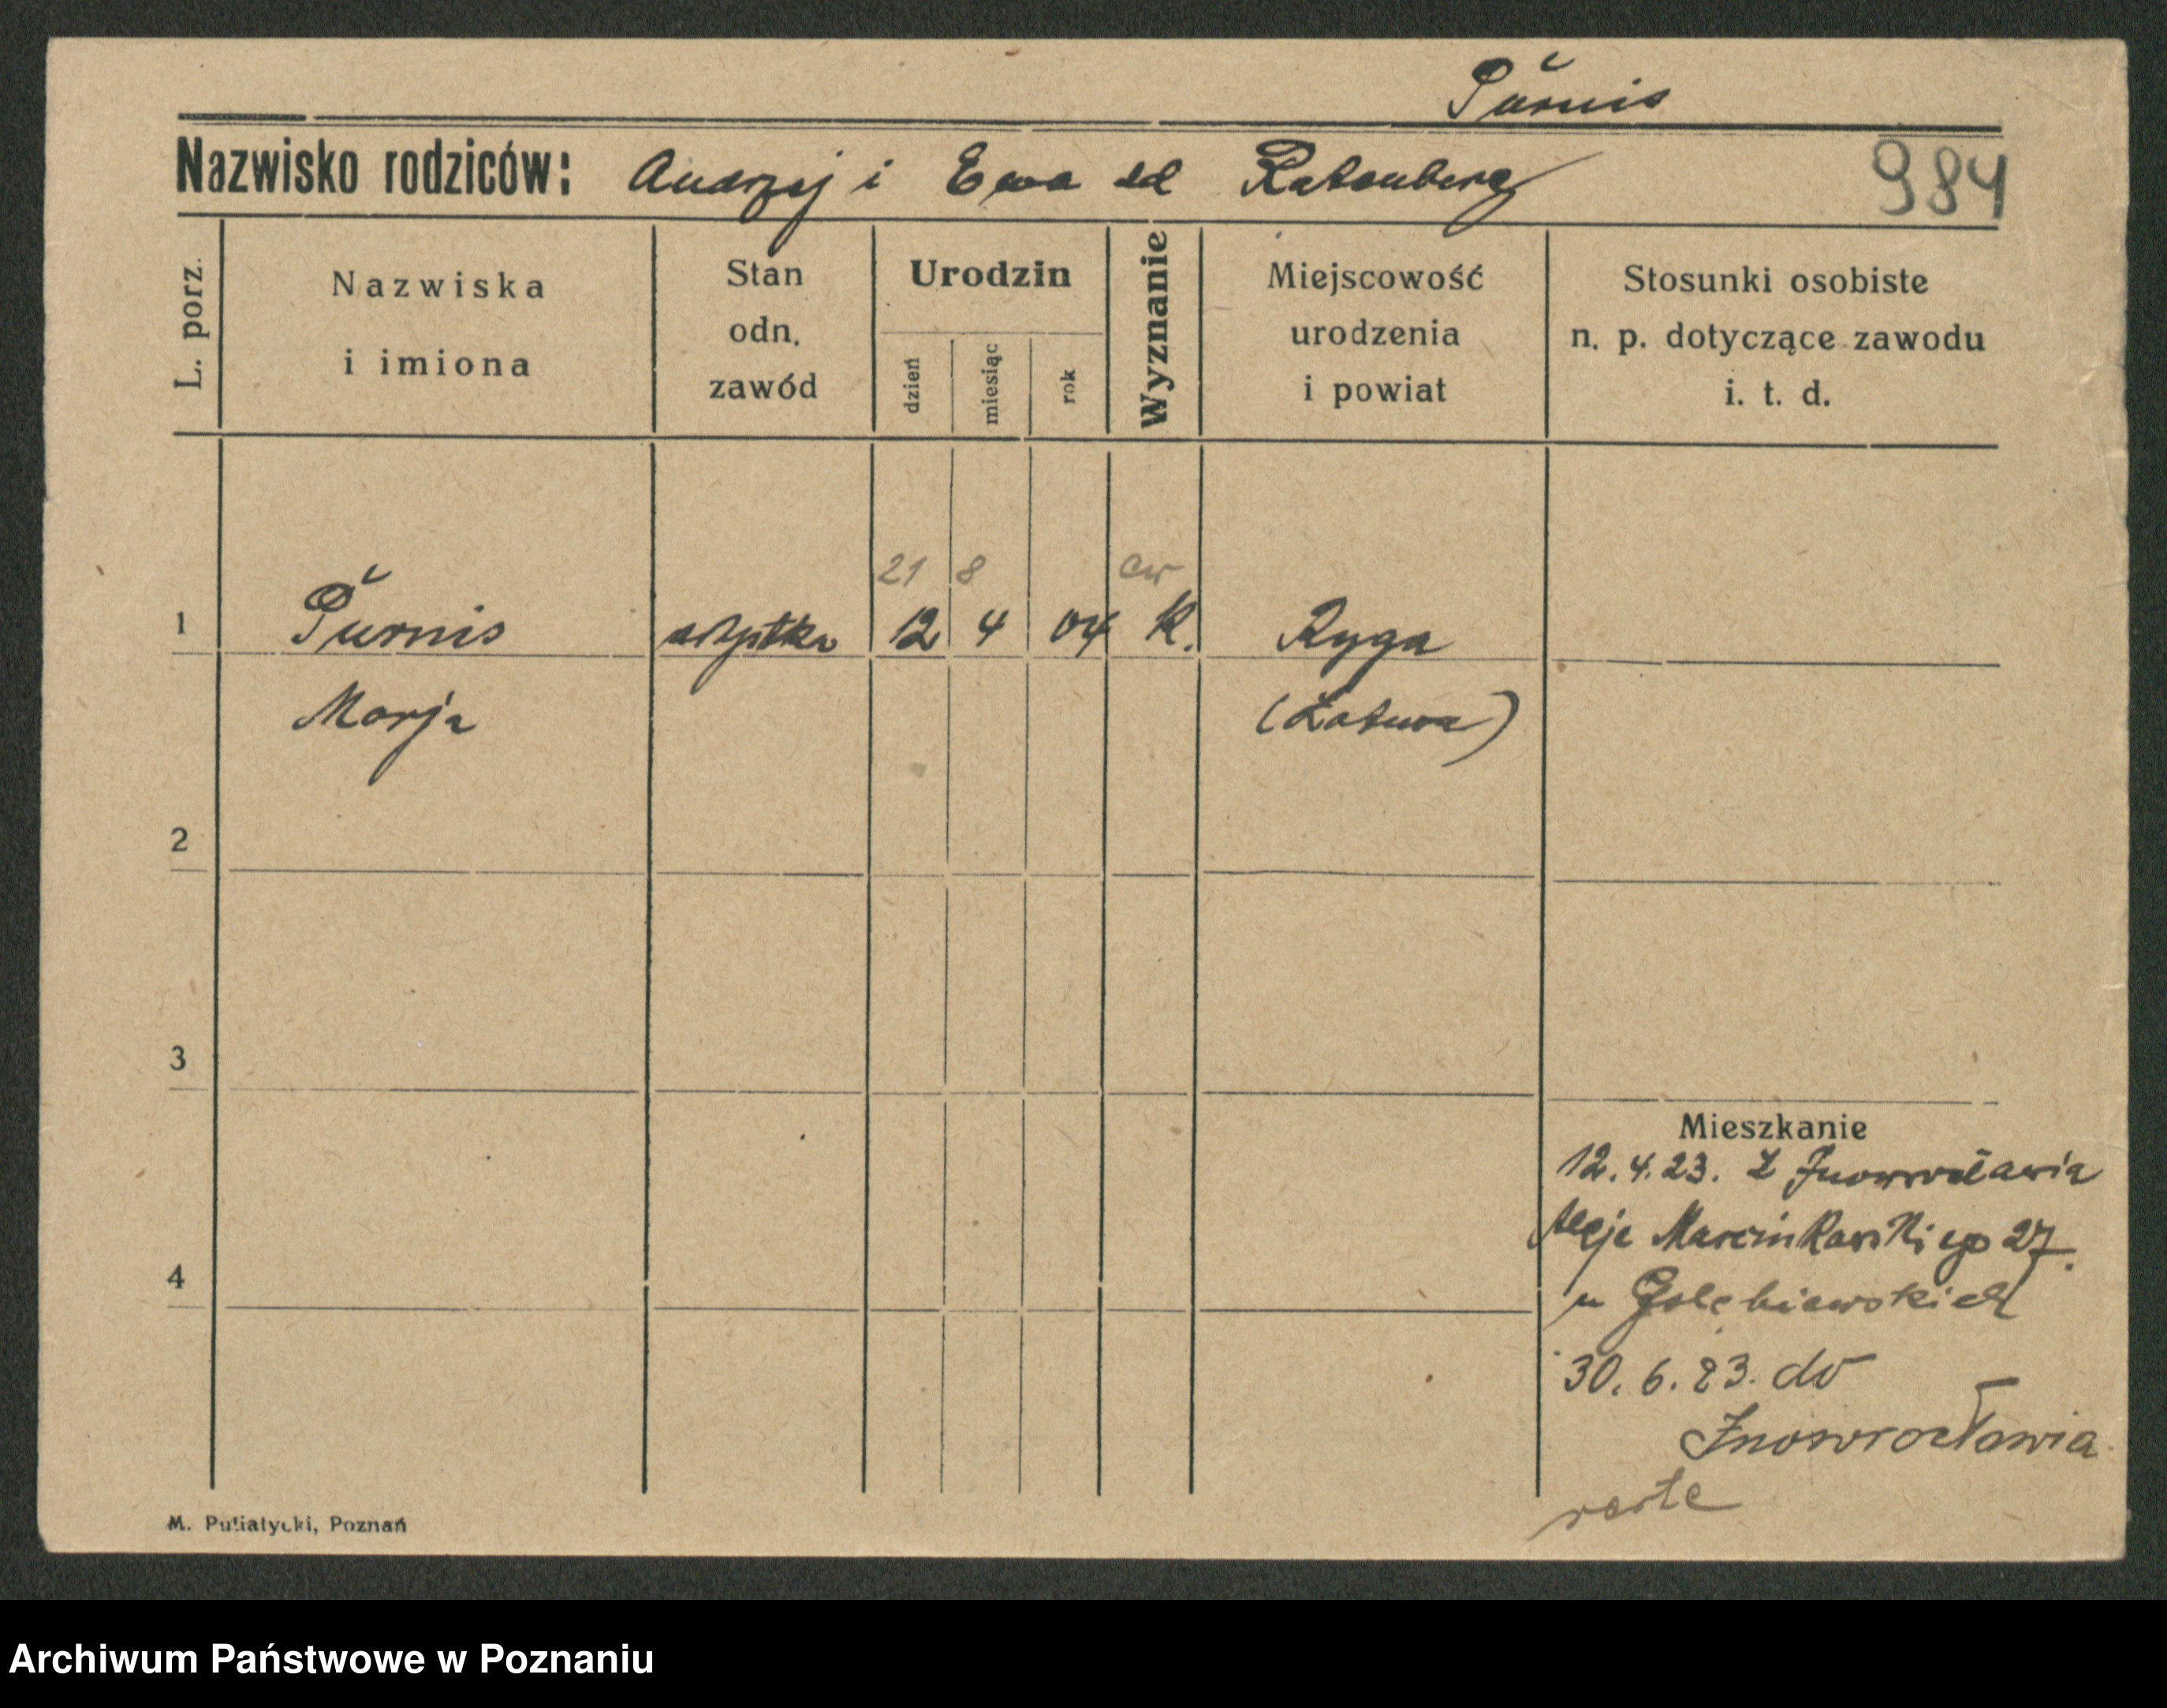 Purnis
Nazwisko rodziców: Andrzej i Ewa zd Katenberg
984
L. porz.
Nazwiska
i imiona
Stan
odn.
zawód
Urodzin
dzień
miesiąc
rok
Wyznanie
Miejscowość
urodzenia
i powiat
Stosunki osobiste
n. p. dotyczące zawodu
i. t. d.
21 8 ew
1 Purnis artystka 12 4 04 K. Ryga
Marja (Łotwa)
2
3
Mieszkanie
12.4.23. z Inowrocławia
Aleje Marcinkowskiego 27.
u Gołębiewskich
4
30.6.23. do
Inowrocławia
M. Putiatycki, Poznań
Archiwum Państwowe w Poznaniu